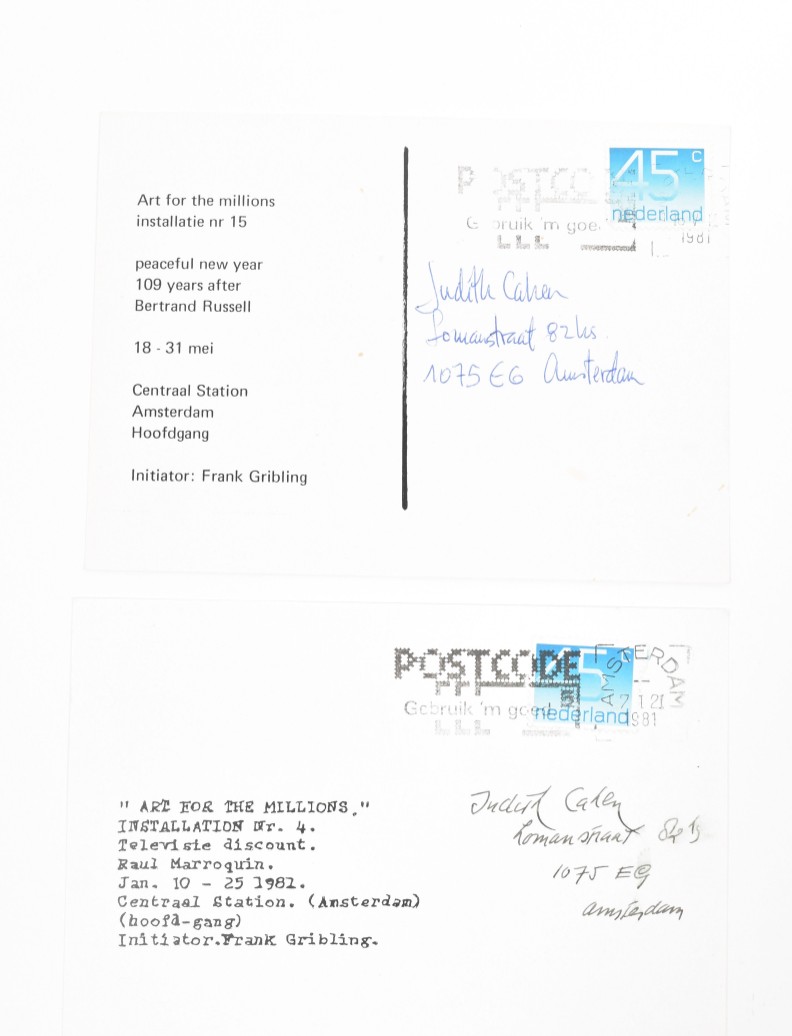 Art for the millions
installatie nr 15
peaceful new year
109 years after
Bertrand Russell
18 - 31 mei
Centraal Station
Amsterdam
Hoofdgang
Initiator: Frank Gribling
POSTCO
Gebruik 'm goe
45 c
nederland
1981
Judith Cahen
Lomanstraat 82hs.
1075 EG Amsterdam
POSTCODE
Gebruik 'm goed
45
nederland
AMSTERDAM
1981
" ART FOR THE MILLIONS."
INSTALLATION Nr. 4.
Televisie discount.
Raul Marroquin.
Jan. 10 - 25 1981.
Centraal Station. (Amsterdam)
(hoofd-gang)
Initiator.Frank Gribling.
Judith Cahen
Lomanstraat 82 hs
1075 EG
Amsterdam